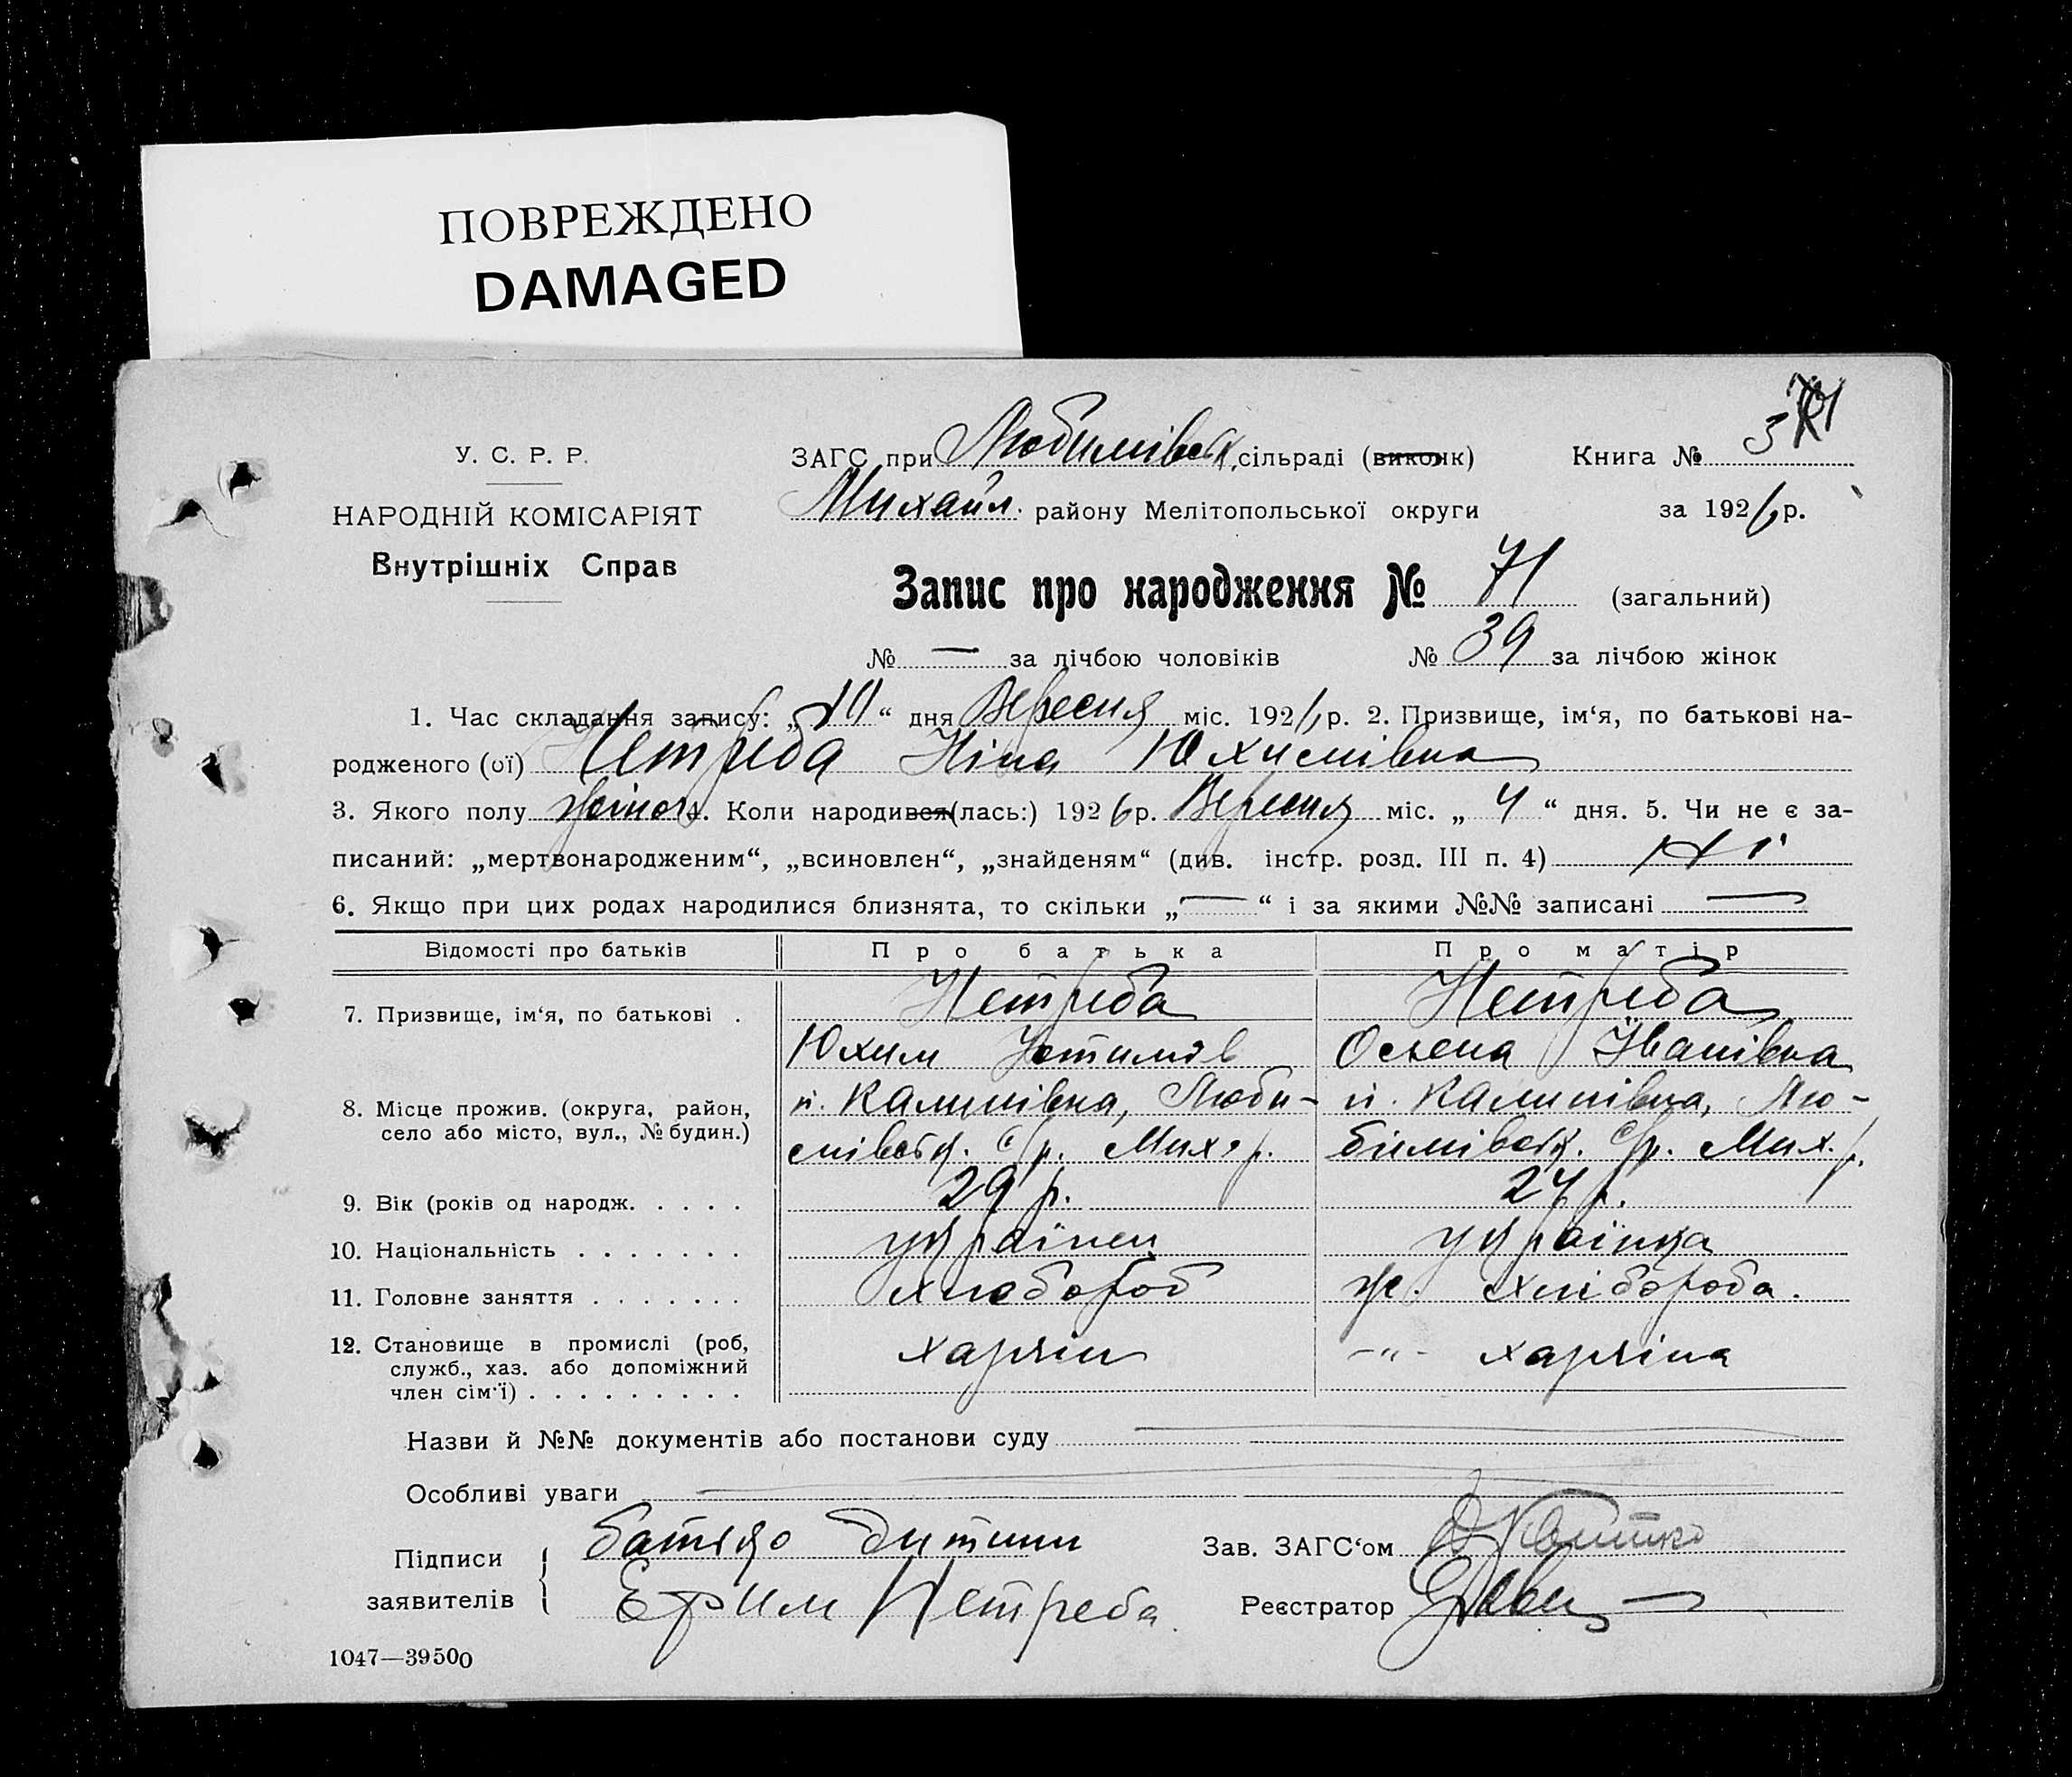 ПОВРЕЖДЕНО
DAMAGED
У. С. Р. Р.
НАРОДНІЙ КОМІСАРІЯТ
Внутрішніх Справ
ЗАГС при Любимівськ. сільраді (виконк)
Книга № 3
Михайл. району Мелітопольської округи
за 1926 р.
Запис про народження № 71 (загальний)
№ — за лічбою чоловіків № 39 за лічбою жінок
1. Час складання запису: „10“ дня Вересня міс. 1926 р. 2. Призвище, ім‘я, по батькові на-
родженого (ої) Нетреба Ніна Юхимівна
3. Якого полу жіноч. Коли народився(лась:) 1926 р. Вересня міс. „ 4 “ дня. 5. Чи не є за-
писаний: „мертвонародженим“, „всиновлен“, „знайденям“ (див. інстр. розд. III п. 4) Ні
6. Якщо при цих родах народилися близнята, то скільки „—“ і за якими №№ записані —
Відомості про батьків Про батька Про матір
7. Призвище, ім‘я, по батькові . Нетреба Нетреба
Юхим Устимов Оксена Іванівна
8. Місце прожив. (округа, район, п. Калинівка, Люби- п. Калинівка, Лю-
село або місто, вул., № будин.) мівськ. с/р. Мих. р. бимівськ. с/р. Мих. р.
9. Вік (років од народж. . . . . 29 р. 24 р.
10. Національність . . . . . . . українец українка
11. Головне заняття . . . . . . . хлебороб ж. хлібороба.
12. Становище в промислі (роб, служб., хаз. або допоміжний член сім‘ї) . . . . . . . . . хазяін -„- хазяіна
Назви й №№ документів або постанови суду
Особливі уваги
Підписи заявителів { батько дитини
Ефим Нетреба
Зав. ЗАГС‘ом
Реєстратор
1047—39500